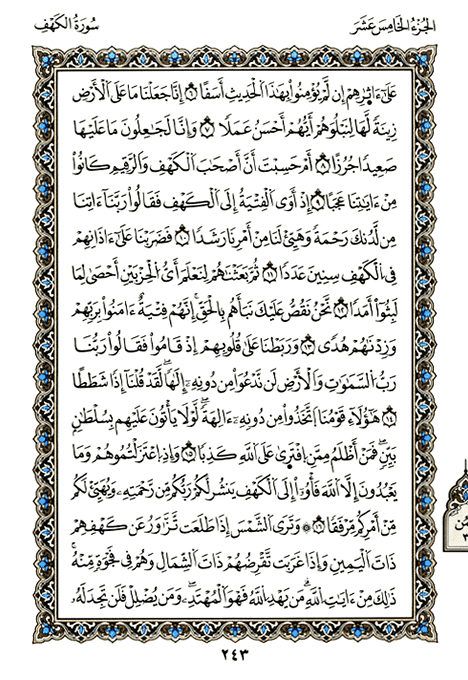 الجُزْءُ الخَامِسَ عَشَرَ
سُورَةُ الكَهْفِ
عَلَىٰٓ ءَاثَٰرِهِمۡ إِن لَّمۡ يُؤۡمِنُواْ بِهَٰذَا ٱلۡحَدِيثِ أَسَفًا ٦ إِنَّا جَعَلۡنَا مَا عَلَى ٱلۡأَرۡضِ
زِينَةٗ لَّهَا لِنَبۡلُوَهُمۡ أَيُّهُمۡ أَحۡسَنُ عَمَلٗا ٧ وَإِنَّا لَجَٰعِلُونَ مَا عَلَيۡهَا
صَعِيدٗا جُرُزًا ٨ أَمۡ حَسِبۡتَ أَنَّ أَصۡحَٰبَ ٱلۡكَهۡفِ وَٱلرَّقِيمِ كَانُواْ
مِنۡ ءَايَٰتِنَا عَجَبًا ٩ إِذۡ أَوَى ٱلۡفِتۡيَةُ إِلَى ٱلۡكَهۡفِ فَقَالُواْ رَبَّنَآ ءَاتِنَا
مِن لَّدُنكَ رَحۡمَةٗ وَهَيِّئۡ لَنَا مِنۡ أَمۡرِنَا رَشَدٗا ١٠ فَضَرَبۡنَا عَلَىٰٓ ءَاذَانِهِمۡ
فِي ٱلۡكَهۡفِ سِنِينَ عَدَدٗا ١١ ثُمَّ بَعَثۡنَٰهُمۡ لِنَعۡلَمَ أَيُّ ٱلۡحِزۡبَيۡنِ أَحۡصَىٰ لِمَا
لَبِثُوٓاْ أَمَدٗا ١٢ نَّحۡنُ نَقُصُّ عَلَيۡكَ نَبَأَهُم بِٱلۡحَقِّۚ إِنَّهُمۡ فِتۡيَةٌ ءَامَنُواْ بِرَبِّهِمۡ
وَزِدۡنَٰهُمۡ هُدٗى ١٣ وَرَبَطۡنَا عَلَىٰ قُلُوبِهِمۡ إِذۡ قَامُواْ فَقَالُواْ رَبُّنَا
رَبُّ ٱلسَّمَٰوَٰتِ وَٱلۡأَرۡضِ لَن نَّدۡعُوَاْ مِن دُونِهِۦٓ إِلَٰهٗاۖ لَّقَدۡ قُلۡنَآ إِذٗا شَطَطًا
١٤ هَٰٓؤُلَآءِ قَوۡمُنَا ٱتَّخَذُواْ مِن دُونِهِۦٓ ءَالِهَةٗۖ لَّوۡلَا يَأۡتُونَ عَلَيۡهِم بِسُلۡطَٰنِۭ
بَيِّنٖۖ فَمَنۡ أَظۡلَمُ مِمَّنِ ٱفۡتَرَىٰ عَلَى ٱللَّهِ كَذِبٗا ١٥ وَإِذِ ٱعۡتَزَلۡتُمُوهُمۡ وَمَا
يَعۡبُدُونَ إِلَّا ٱللَّهَ فَأۡوُۥٓاْ إِلَى ٱلۡكَهۡفِ يَنشُرۡ لَكُمۡ رَبُّكُم مِّن رَّحۡمَتِهِۦ وَيُهَيِّئۡ لَكُم
مِّنۡ أَمۡرِكُم مِّرۡفَقٗا ١٦ ۞ وَتَرَى ٱلشَّمۡسَ إِذَا طَلَعَت تَّزَٰوَرُ عَن كَهۡفِهِمۡ
ذَاتَ ٱلۡيَمِينِ وَإِذَا غَرَبَت تَّقۡرِضُهُمۡ ذَاتَ ٱلشِّمَالِ وَهُمۡ فِي فَجۡوَةٖ مِّنۡهُۚ
ذَٰلِكَ مِنۡ ءَايَٰتِ ٱللَّهِۗ مَن يَهۡدِ ٱللَّهُ فَهُوَ ٱلۡمُهۡتَدِۖ وَمَن يُضۡلِلۡ فَلَن تَجِدَ لَهُۥ
٢٤٣